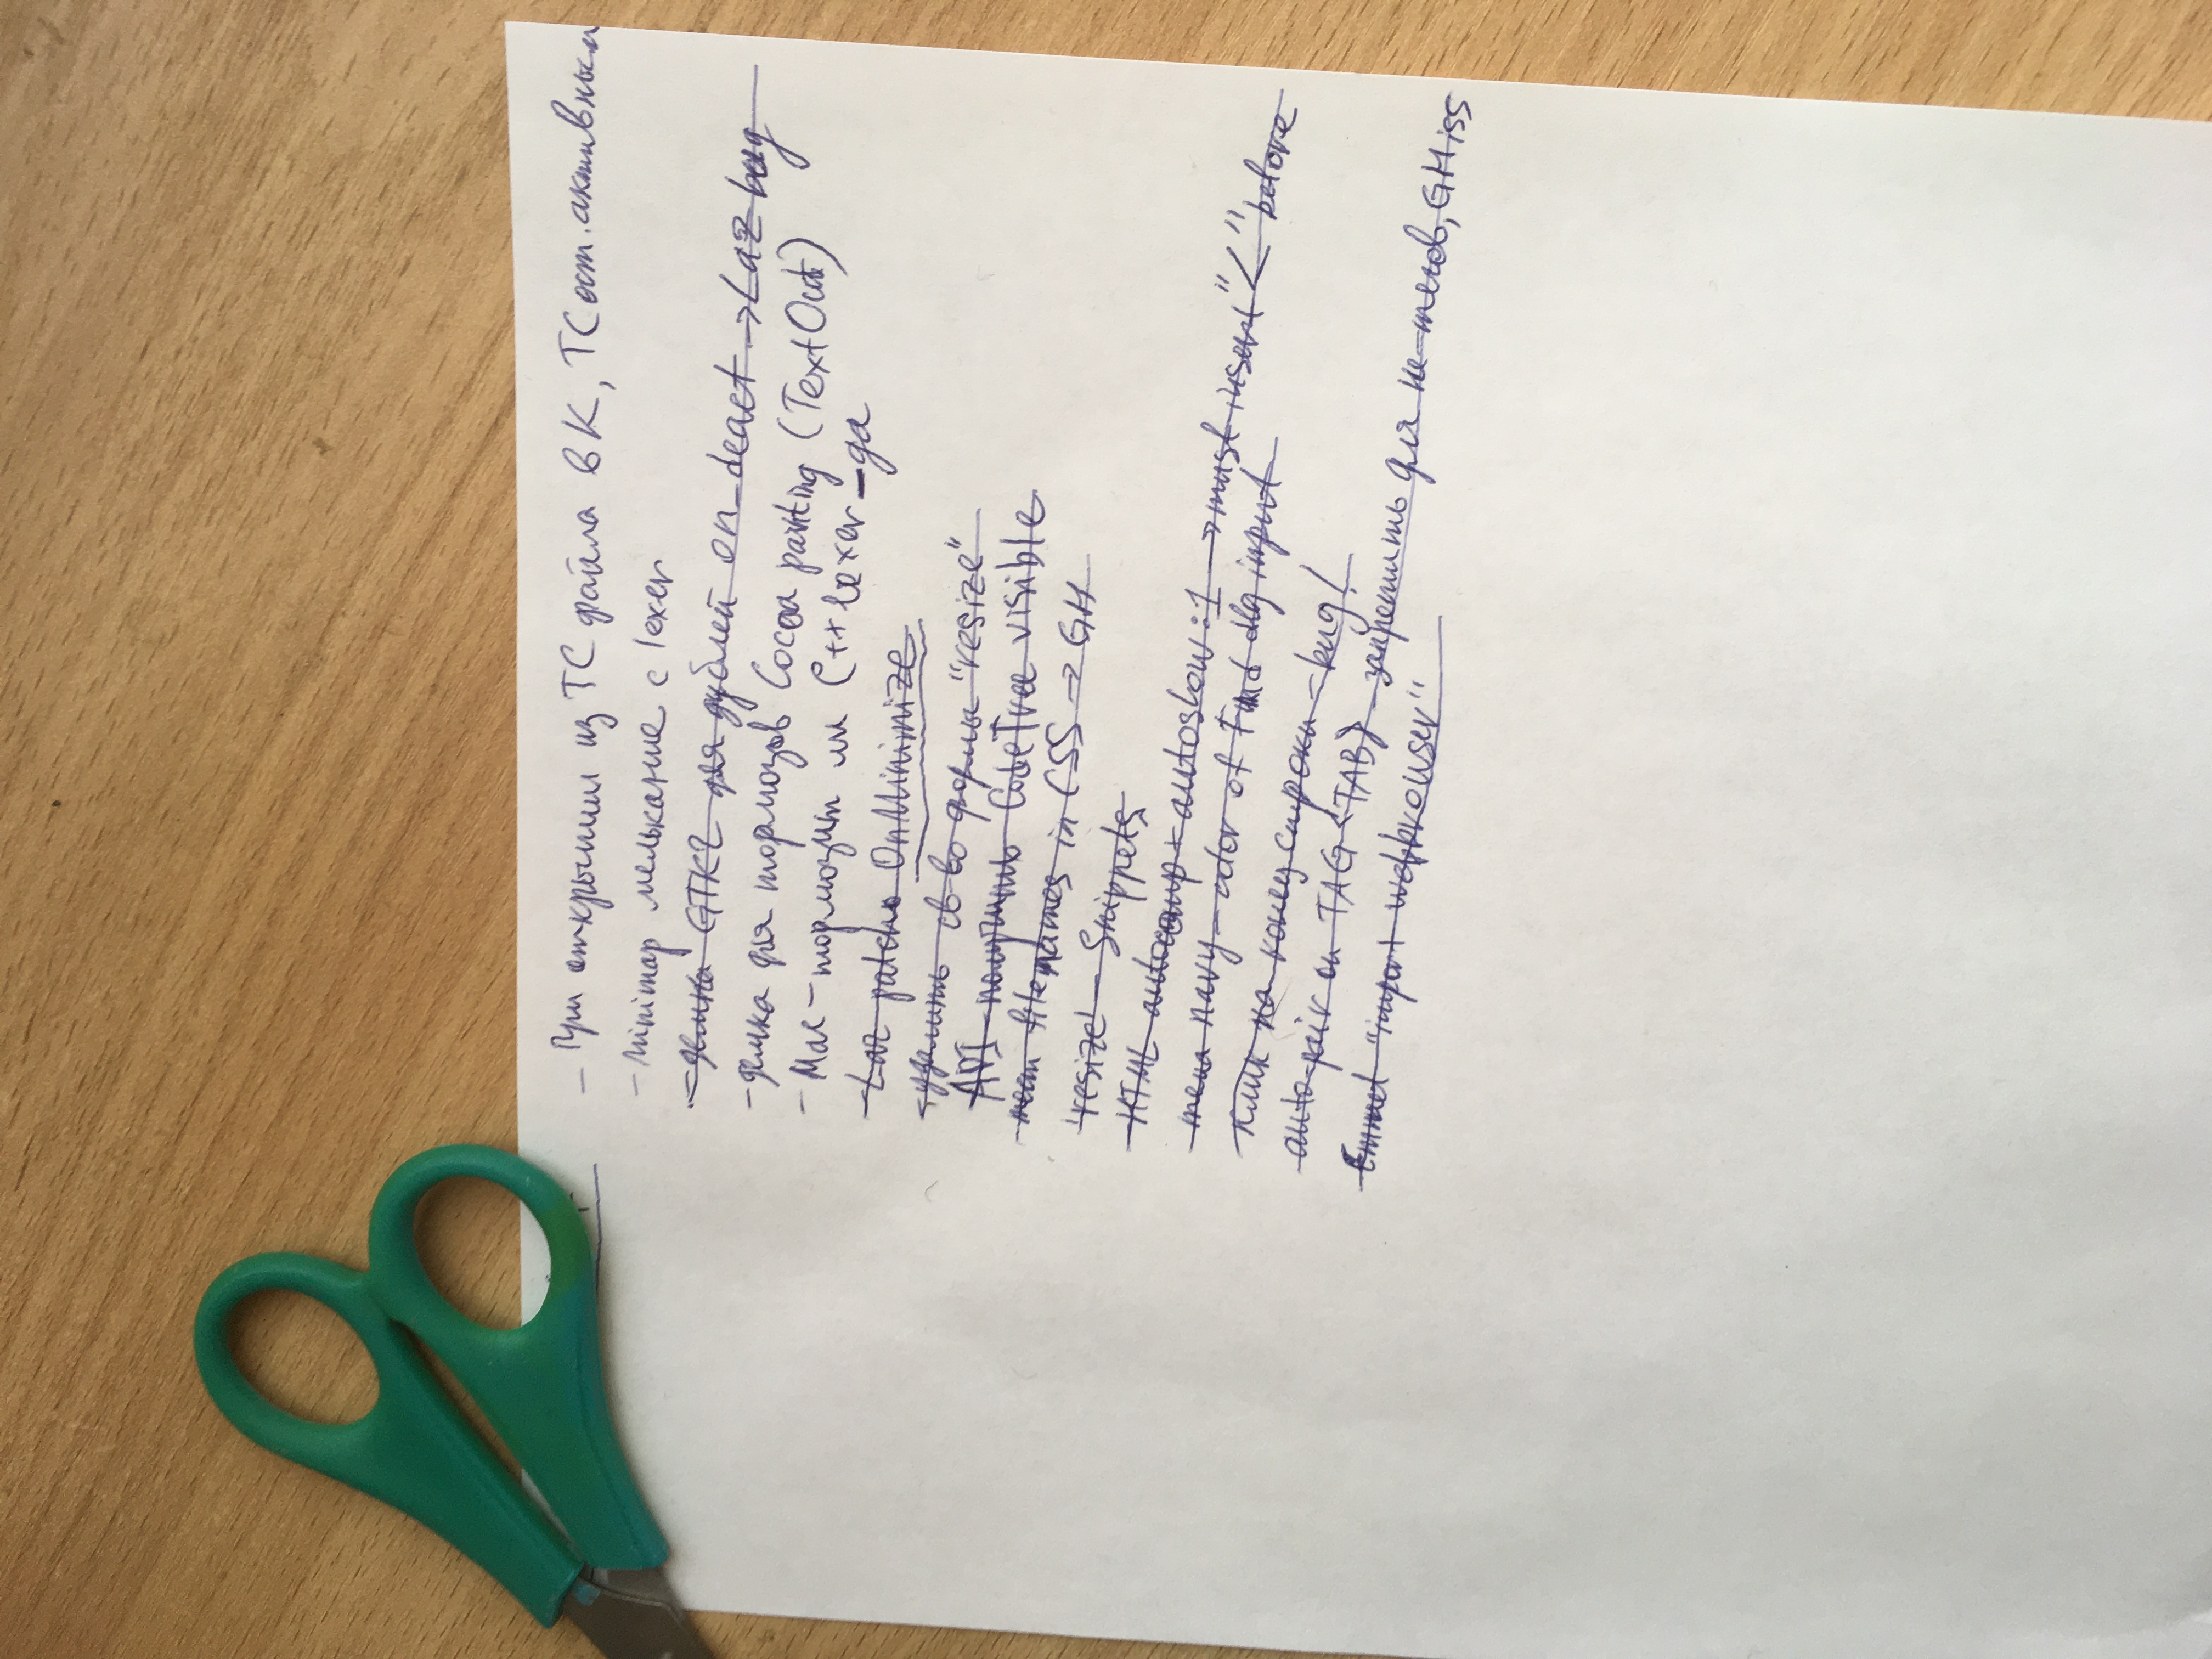 - При открытии из TC файла в К, TC ост. активным
- Minimap мелькание с lexer
- демка GTK2 для дублей on_deact → Laz bug
- демка для тормозов Cocoa painting (TextOut)
- Mac - тормозит ли C++ lexer - да
- Laz patch OnMinimize
- удалить св-во формы "resize"
API - получить CodeTree visible
- filenames in CSS → GH
resize - Snippets
- HTML autocomp + autoshow:1 → must insert "<" before
- menu navy - color of Find dlg input
- клик на конец строки - bug!
auto-pair on TAG<TAB> - запретить для не-тегов, GH iss
Emmet "import webbrowser"